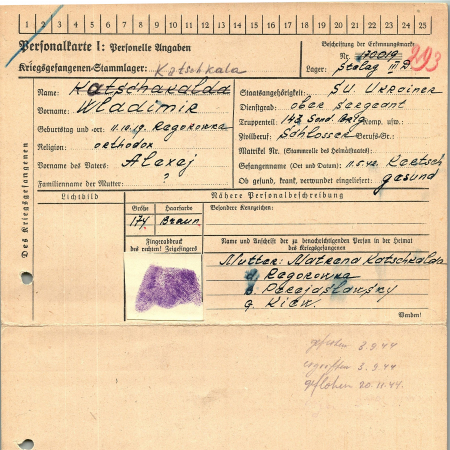 1 2 3 4 5 6 7 8 9 10 11 12 13 14 15 16 17 18 19 20 21 22 23 24 25
Personalkarte I: Personelle Angaben
Kriegsgefangenen-Stammlager: Katschkala
Beschriftung der Erkennungsmarke
Nr. 170019
Lager: Stalag III D
293
Des Kriegsgefangenen
Name: Katschakalda
Vorname: Wladimir
Geburtstag und -ort: 11.10.19. Regorowka
Religion: orthodox
Vorname des Vaters: Alexej
Familienname der Mutter: ?
Staatsangehörigkeit: SU. Ukrainer
Dienstgrad: ober sergeant
Truppenteil: 143 Sond. Brig Komp. usw.:
Zivilberuf: Schlosser Berufs-Gr.:
Matrikel Nr. (Stammrolle des Heimatstaates):
Gefangennahme (Ort und Datum): 11.5.42. Kertsch
Ob gesund, krank, verwundet eingeliefert: gesund
Lichtbild
Nähere Personalbeschreibung
Größe Haarfarbe Besondere Kennzeichen:
174. Braun.
Fingerabdruck
des rechten! Zeigefingers
Name und Anschrift der zu benachrichtigenden Person in der Heimat
des Kriegsgefangenen
Mutter: Matrena Katschkalda
d. Regorowka
b. Perejaslawsky
g. Kiew.
Wenden!
geflohen 3.9.44
ergriffen 3.9.44
geflohen 20.11.44.